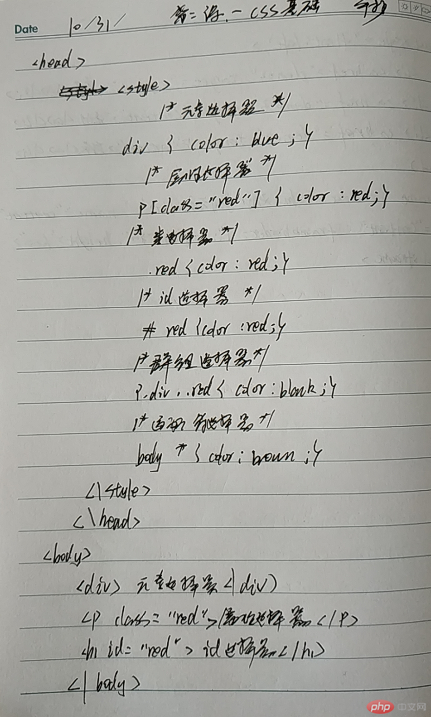 Date 10/31/ 第二课.一CSS基础
<head>
<style>
/* 元素选择器 */
div { color : blue ; }
/* 属性选择器 */
P [class = "red"] { color : red; }
/* 类选择器 */
.red {color : red; }
/* id选择器 */
# red {color : red; }
/* 群组选择器 */
P.div..red{ color : blank ; }
/* 选择器 */
body * { color : brown ; }
<\style>
<\head>
<body>
<div> 元素选择器</div>
<P class = "red">属性选择器</P>
<h1 id= "red"> id选择器</h1>
</body>
php 中文网